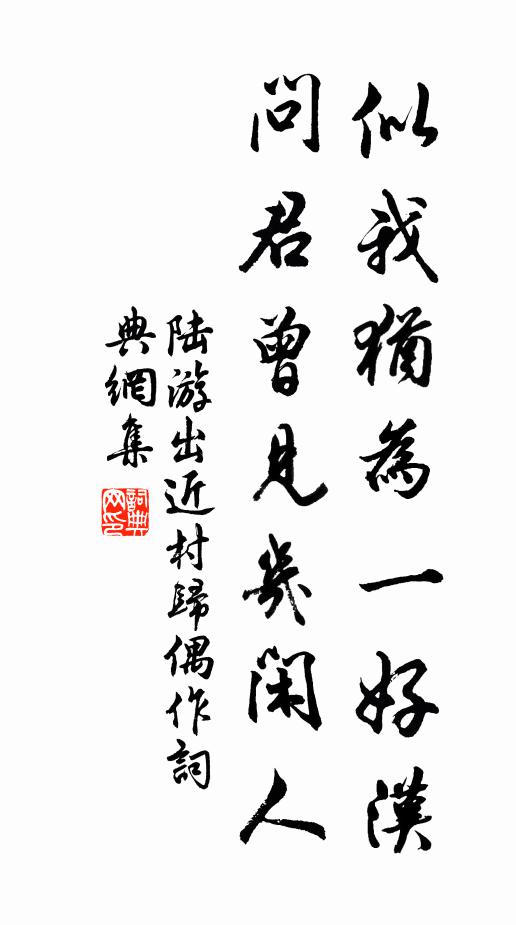 似我猶為一好漢
問君曾見幾閑人
陆游出近村歸偶作詞
典網集
詞典
网印